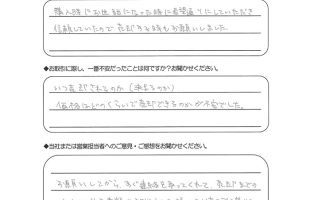 購入時にお世話になった時に希望通りにしていただき
信頼していたので売却する時もお願いしました。
◆お取引に際し、一番不安だったことは何ですか？お聞かせください。
いつ売却されるのか（来るのか）
価格はどのくらいで売却できるのかが不安でした。
◆当社または営業担当者へのご意見・ご感想をお聞かせください。
お願いしてから、すぐ連絡を取ってくれて、売却まで